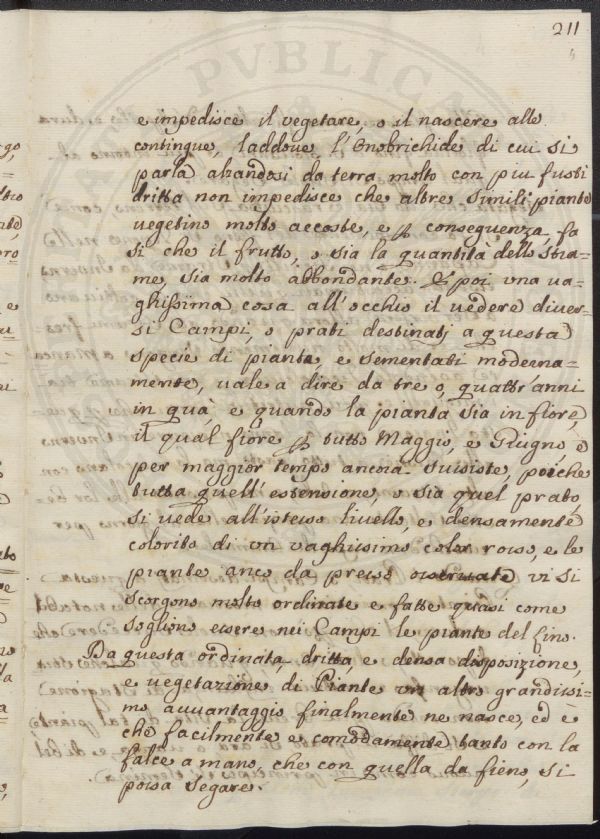 211
e impedisce il vegetare, o il nascere alle
contingue, laddove l'Onobrichide di cui si
parla alzandosi da terra molto con piu fusti
dritta non impedisce che altre simili piante
vegetino molto accoste, e p conseguenza fa
si che il frutto, o sia la quantità dello stra=
me, sia molto abbondante. E poi una va=
ghissima cosa all'occhio il vedere diver=
si Campi, o prati destinatj a questa
specie di pianta e sementati moderna=
mente, vale a dire da tre o quattr'anni
in quà, e quando la pianta sia in fiore,
il qual fiore p tutto Maggio, e Giugno, e
per maggior tempo ancora sussiste, poiche
tutta quell'estensione, o sia quel prato,
si vede all'istesso livello, e densamente
colorito di un vaghissimo color rosso, e le
piante anco da presso osservate vi si
scorgono molto ordinate e fatte quasi come
sogliono essere nei Campi le piante del Lino.
Da questa ordinata, dritta e densa disposizione,
e vegetazione di Piante un altro grandissi=
mo avvantaggio finalmente ne nasce, ed è
che facilmente e comodamente tanto con la
falce a mano, che con quella da fieno, si
possa segare.
PVBLICA